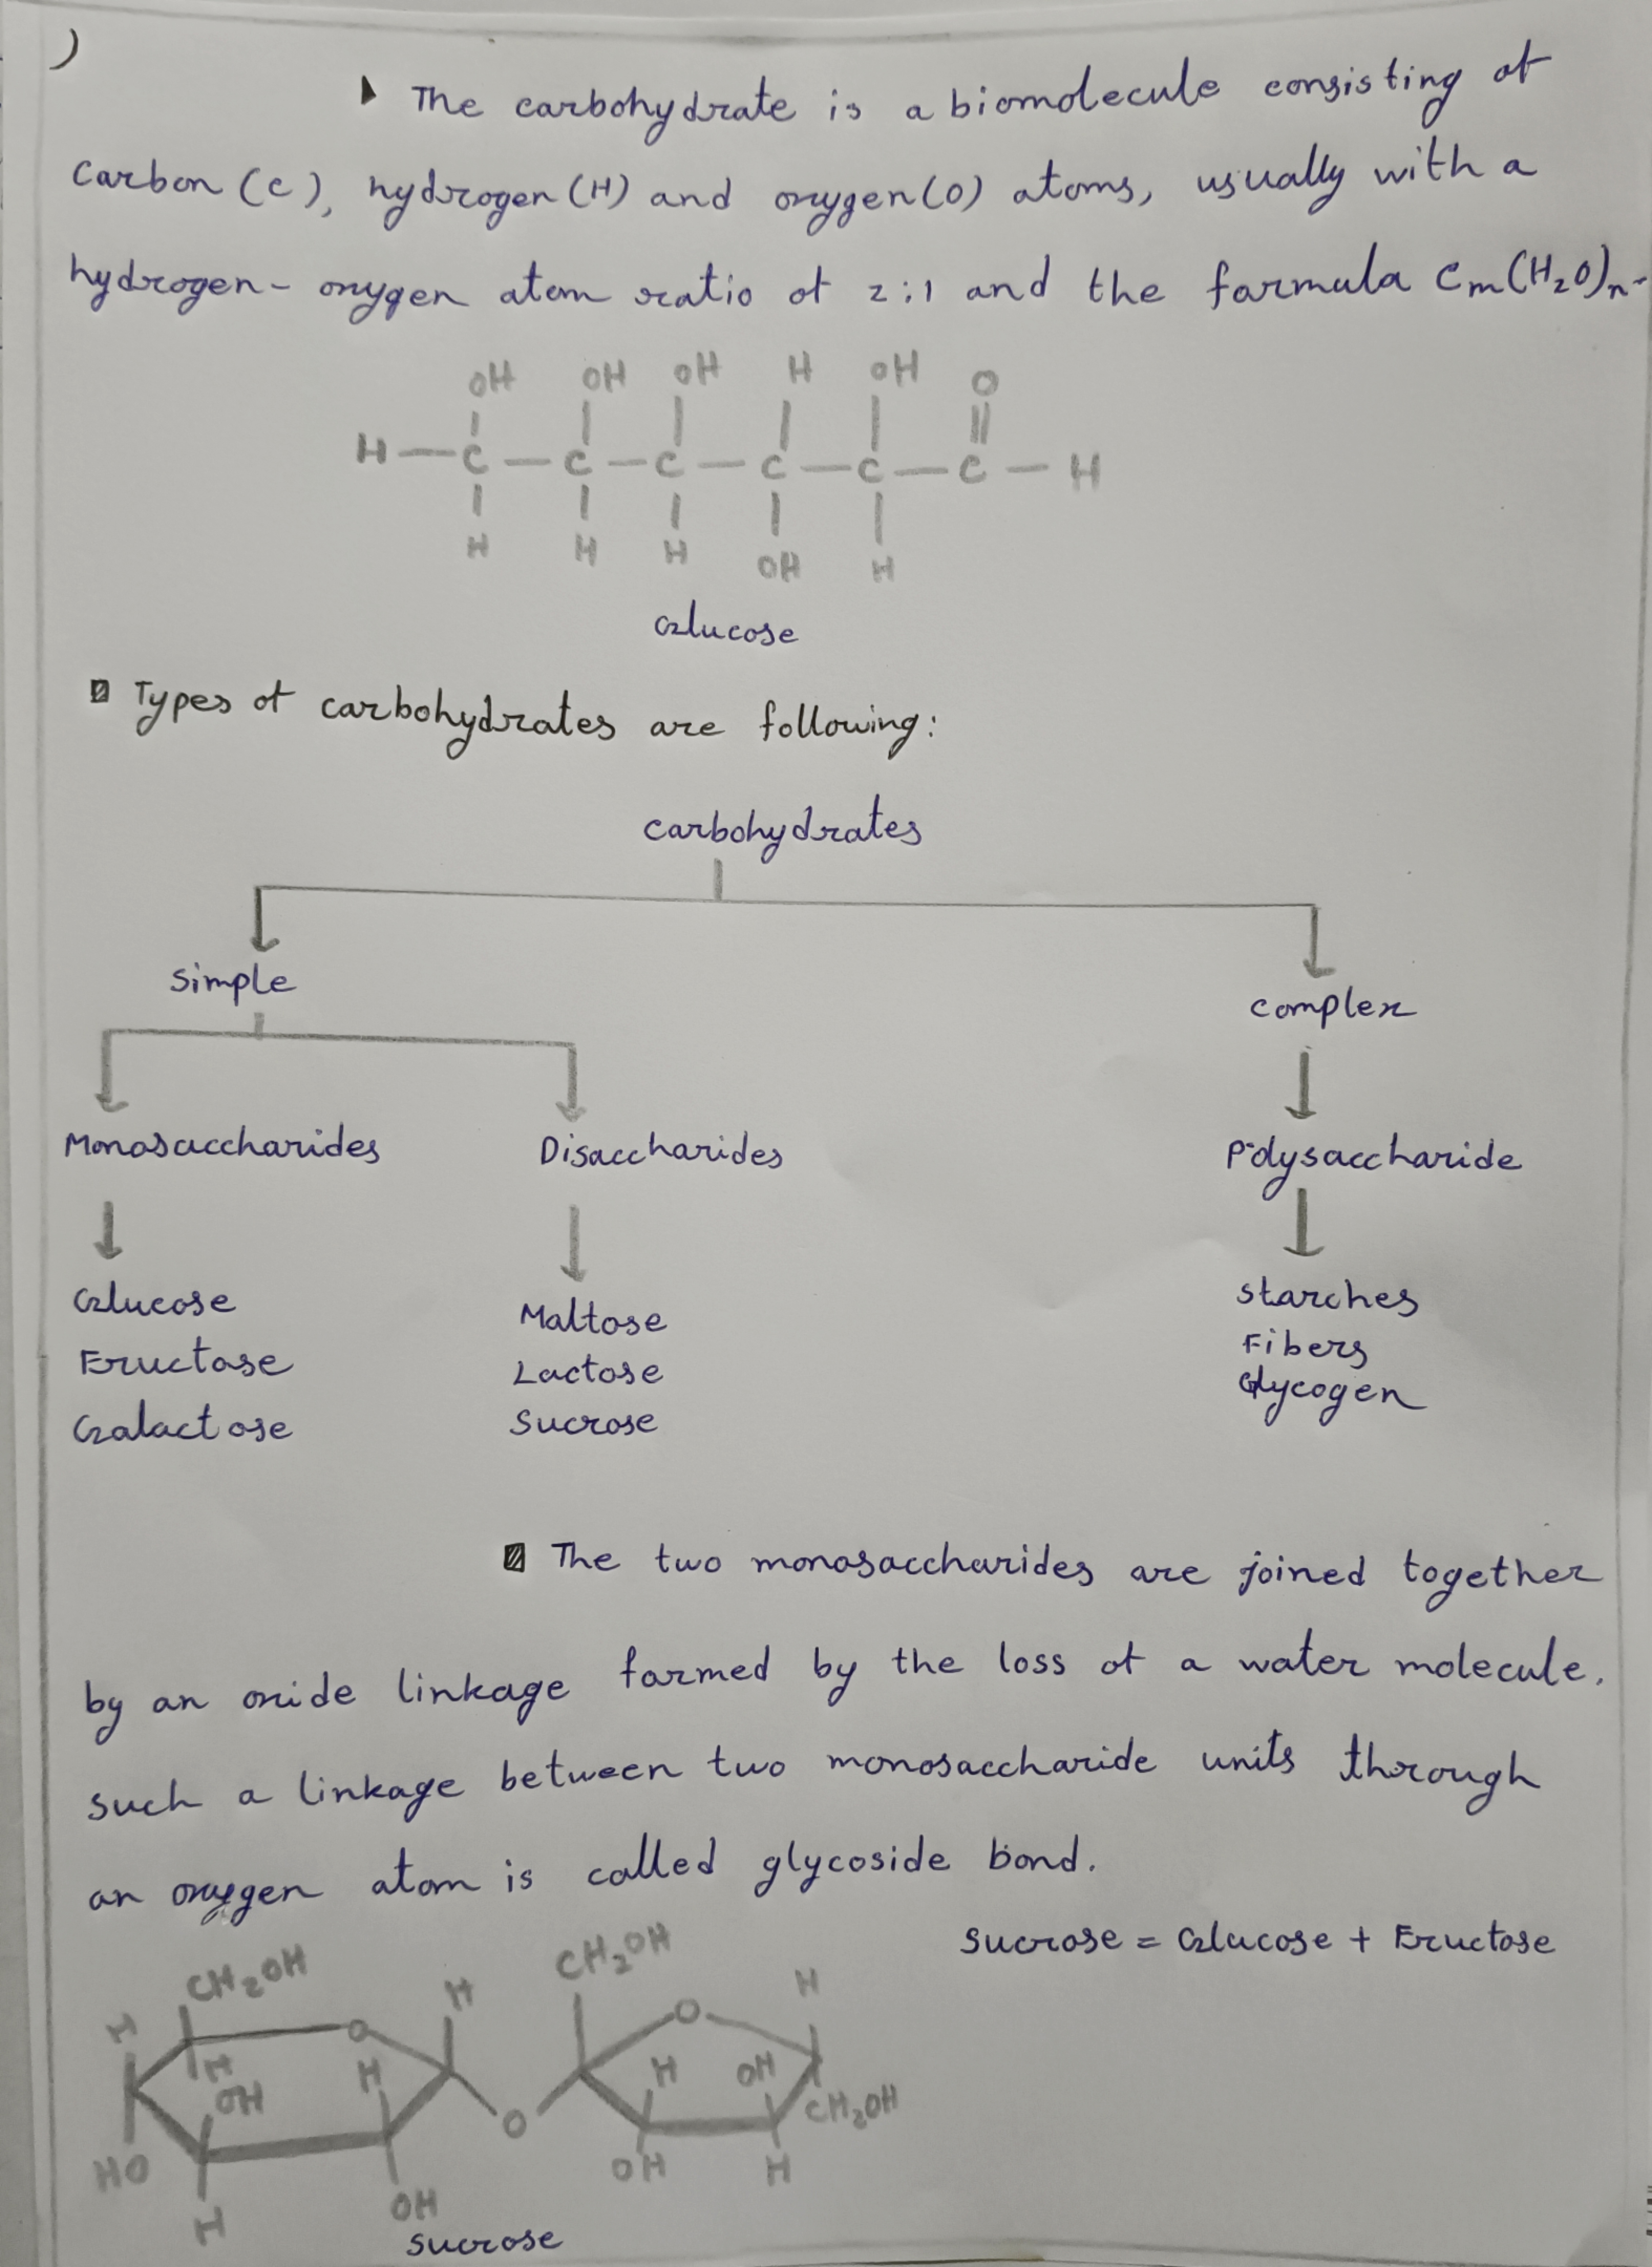 )
▶ The carbohydrate is a biomolecule consisting of
Carbon (C), hydrogen (H) and oxygen (O) atoms, usually with a
hydrogen - oxygen atom ratio of 2:1 and the formula Cm(H₂O)n.
OH OH OH H OH O
H — C — C — C — C — C — C — H
H H H OH H
Glucose
Types of carbohydrates are following:
Carbohydrates
Simple
Complex
Monosaccharides Disaccharides Polysaccharide
Glucose Maltose Starches
Fructose Lactose Fibers
Galactose Sucrose Glycogen
The two monosaccharides are joined together
by an oxide linkage formed by the loss of a water molecule.
such a linkage between two monosaccharide units through
an oxygen atom is called glycoside bond.
Sucrose = Glucose + Fructose
CH₂OH H CH₂OH H
H O O
H H H OH
OH CH₂OH
O
HO OH H
H OH
Sucrose